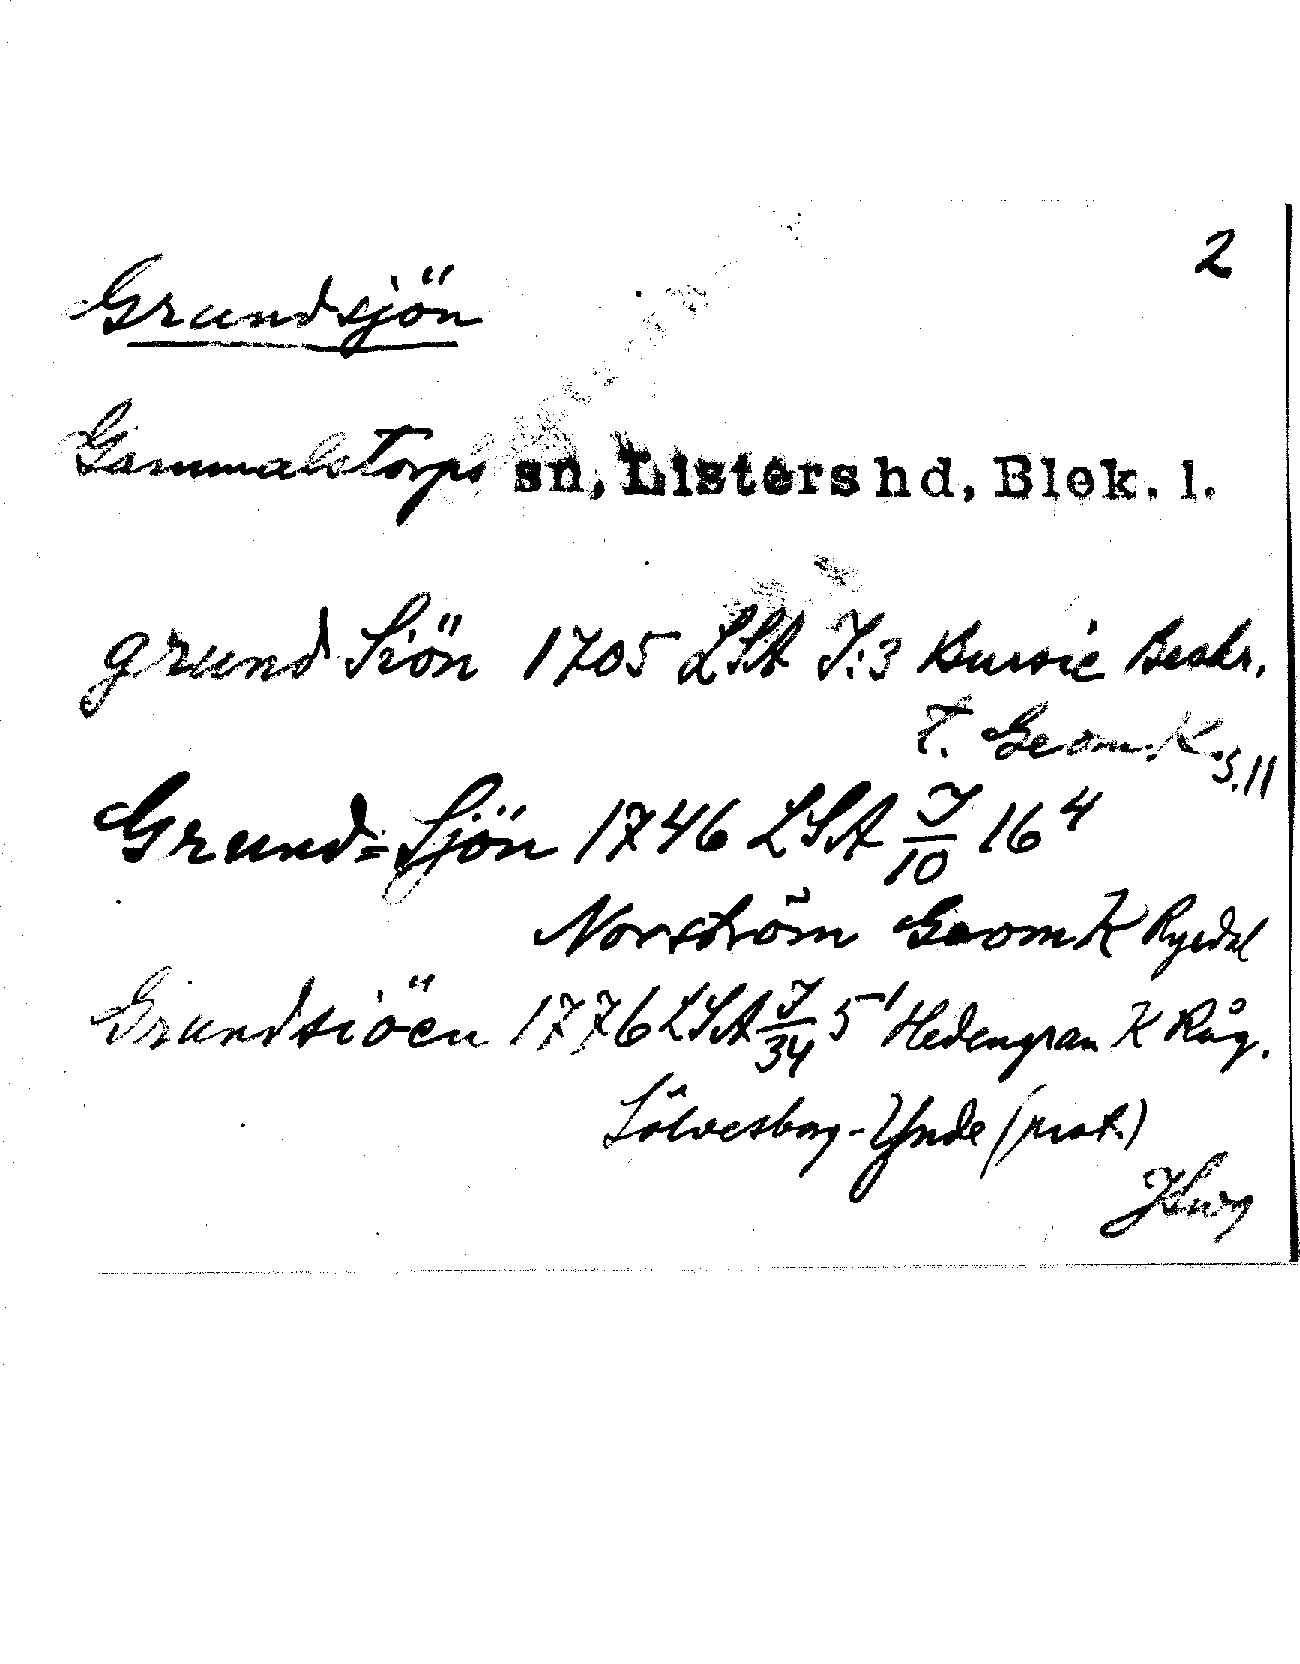 2
Grundsjön
Gammalstorps sn, Listers hd, Blek. l.
grund Siön 1705 LSA J:3 Bursie Beskr.
t. Geom. K. s. 11
Grund=Sjön 1746 LSA J/10 16⁴
Norström Geom K Ryedal
Grundsiöen 1776 LSA J/34 5¹ Hedengran K Råg.
Sölvesborg-Ynde (prot.)